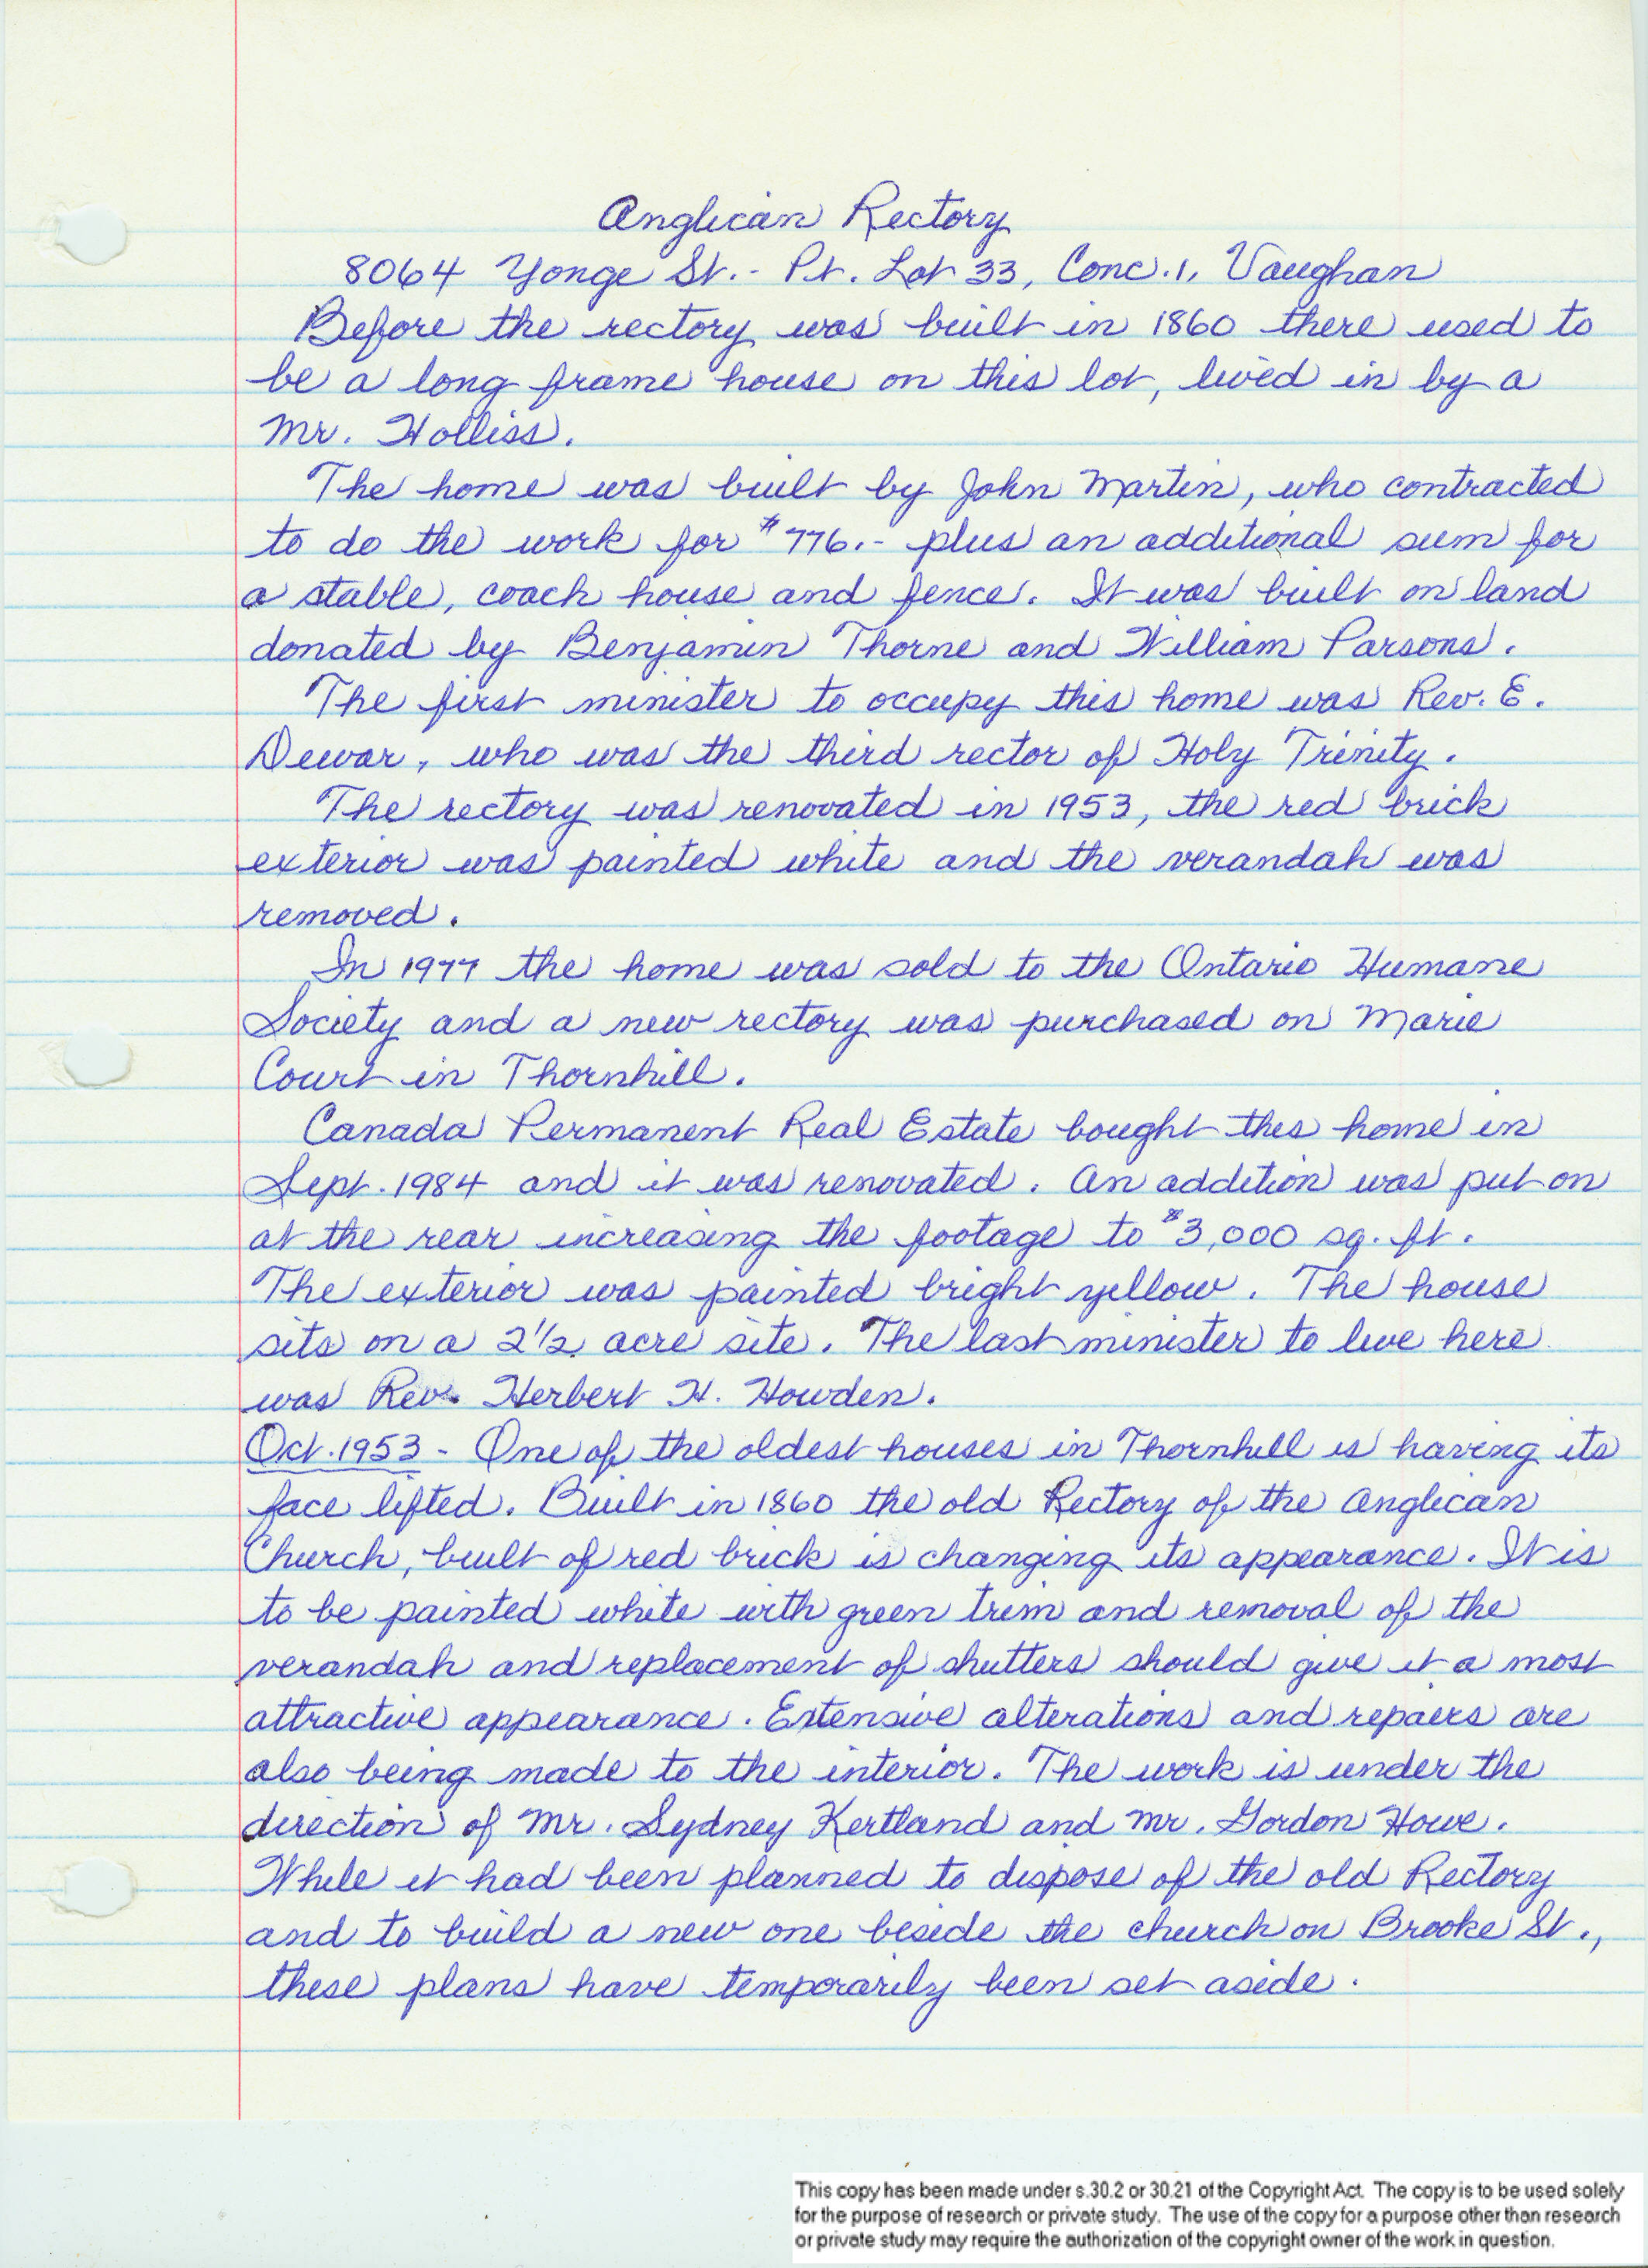 Anglican Rectory
8064 Yonge St. - Pt. Lot 33, Conc. 1, Vaughan
Before the rectory was built in 1860 there used to
be a long frame house on this lot, lived in by a
Mr. Holliss.
The home was built by John Martin, who contracted
to do the work for $776.- plus an additional sum for
a stable, coach house and fence. It was built on land
donated by Benjamin Thorne and William Parsons.
The first minister to occupy this home was Rev. E.
Dewar, who was the third rector of Holy Trinity.
The rectory was renovated in 1953, the red brick
exterior was painted white and the verandah was
removed.
In 1977 the home was sold to the Ontario Humane
Society and a new rectory was purchased on Marie
Court in Thornhill.
Canada Permanent Real Estate bought this home in
Sept. 1984 and it was renovated. An addition was put on
at the rear increasing the footage to $3,000 sq. ft.
The exterior was painted bright yellow. The house
sits on a 2 1/2 acre site. The last minister to live here
was Rev. Herbert H. Howden.
Oct. 1953 - One of the oldest houses in Thornhill is having its
face lifted. Built in 1860 the old Rectory of the Anglican
Church, built of red brick is changing its appearance. It is
to be painted white with green trim and removal of the
verandah and replacement of shutters should give it a most
attractive appearance. Extensive alterations and repairs are
also being made to the interior. The work is under the
direction of Mr. Sydney Kertland and Mr. Gordon Howe.
While it had been planned to dispose of the old Rectory
and to build a new one beside the church on Brooke St.,
these plans have temporarily been set aside.
This copy has been made under s.30.2 or 30.21 of the Copyright Act. The copy is to be used solely
for the purpose of research or private study. The use of the copy for a purpose other than research
or private study may require the authorization of the copyright owner of the work in question.